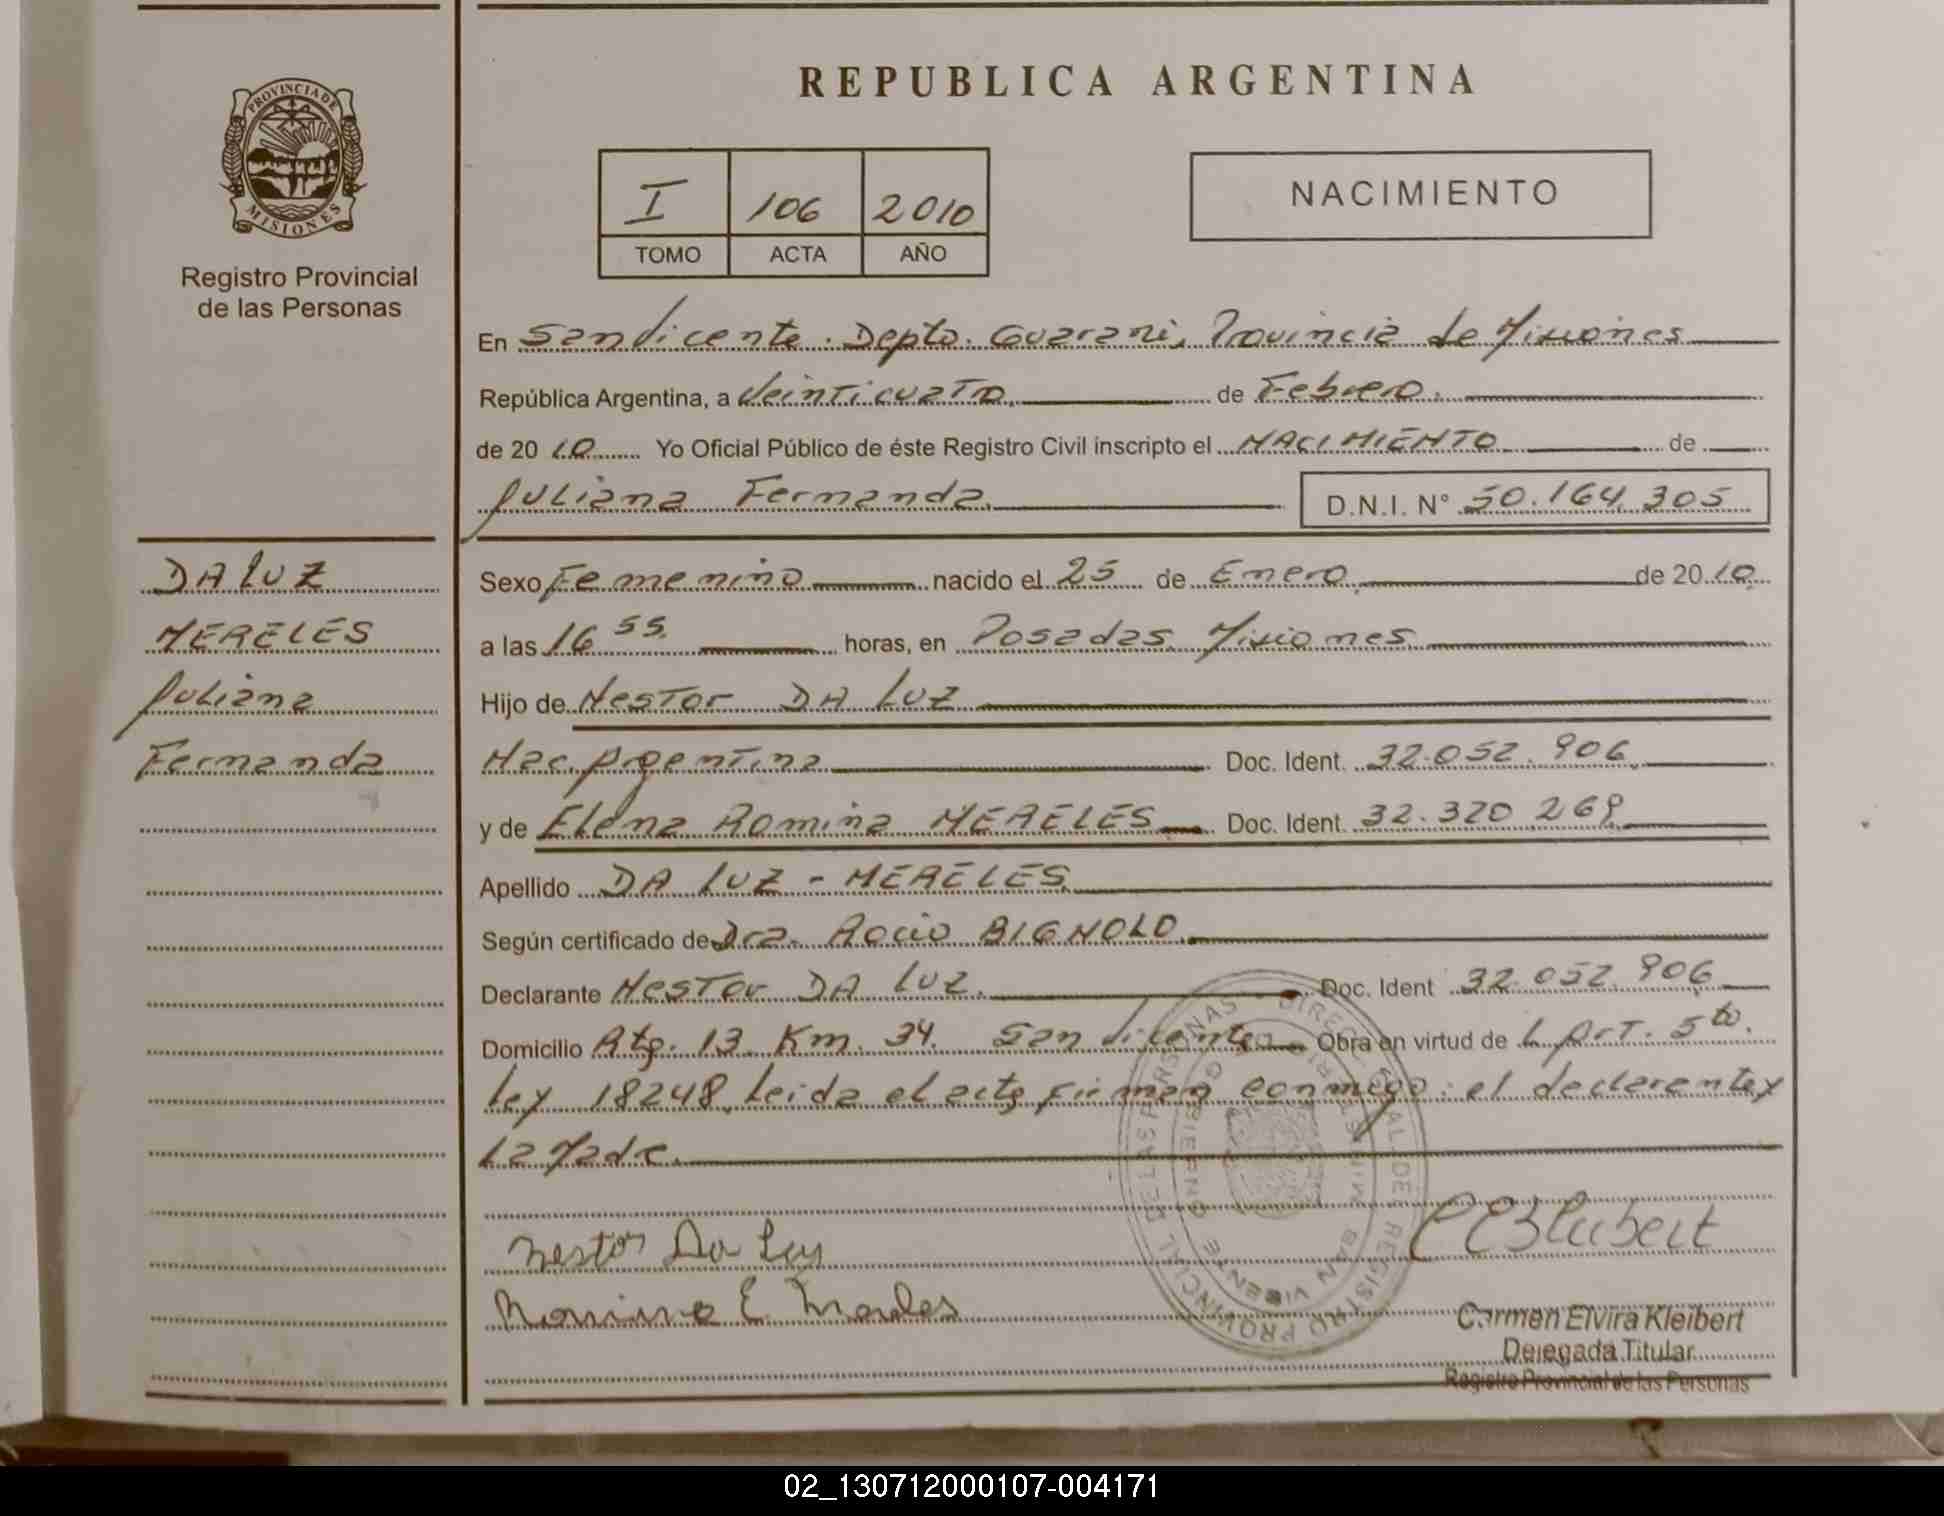 PROVINCIA DE
MISIONES
Registro Provincial
de las Personas
DA LUZ
MERELES
Juliana
Fernanda
REPUBLICA ARGENTINA
I 106 2010
TOMO ACTA AÑO
NACIMIENTO
En San Vicente. Depto. Guarani, Provincia de Misiones
República Argentina, a Veinticuatro de Febrero.
de 20 10 Yo Oficial Público de éste Registro Civil inscripto el NACIMIENTO de
Juliana Fernanda. D.N.I. N° 50.164.305
Sexo Femenino nacido el 25 de Enero de 20 10
a las 16 55. horas, en Posadas. Misiones
Hijo de Nestor DA LUZ
Nac. Argentina Doc. Ident. 32.052.906
y de Elena Romina MERELES Doc. Ident. 32.320.269
Apellido DA LUZ - MERELES
Según certificado de Dra. Rocio BIGNOLO
Declarante Nestor DA LUZ. Doc. Ident 32.052.906
Domicilio Rta. 13 Km. 34. San Vicente Obra en virtud de L. Art. 5to.
Ley 18248. Leida el acta firman conmigo: el declarente y
La Madre.
Nestor Da Luz
Romina E. Mereles
DIREC AL DEL REGISTRO PROVINCIAL DE LAS PERSONAS
SAN VICENTE
Carmen Elvira Kleibert
Delegada Titular
Registro Provincial de las Personas
02_130712000107-004171